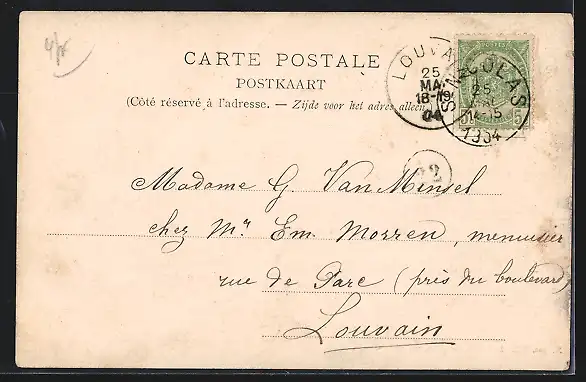 4/5
CARTE POSTALE
POSTKAART
(Côté réservé à l'adresse. — Zijde voor het adres alleen.)
LOUVA
25
MA
18-19
04
POSTES
5
ST NICOLAS
25
14-15
1904
Madame G Van Minsel
chez Mr Em. Morren, menuisier
rue de Parc (près du boulevard)
Louvain